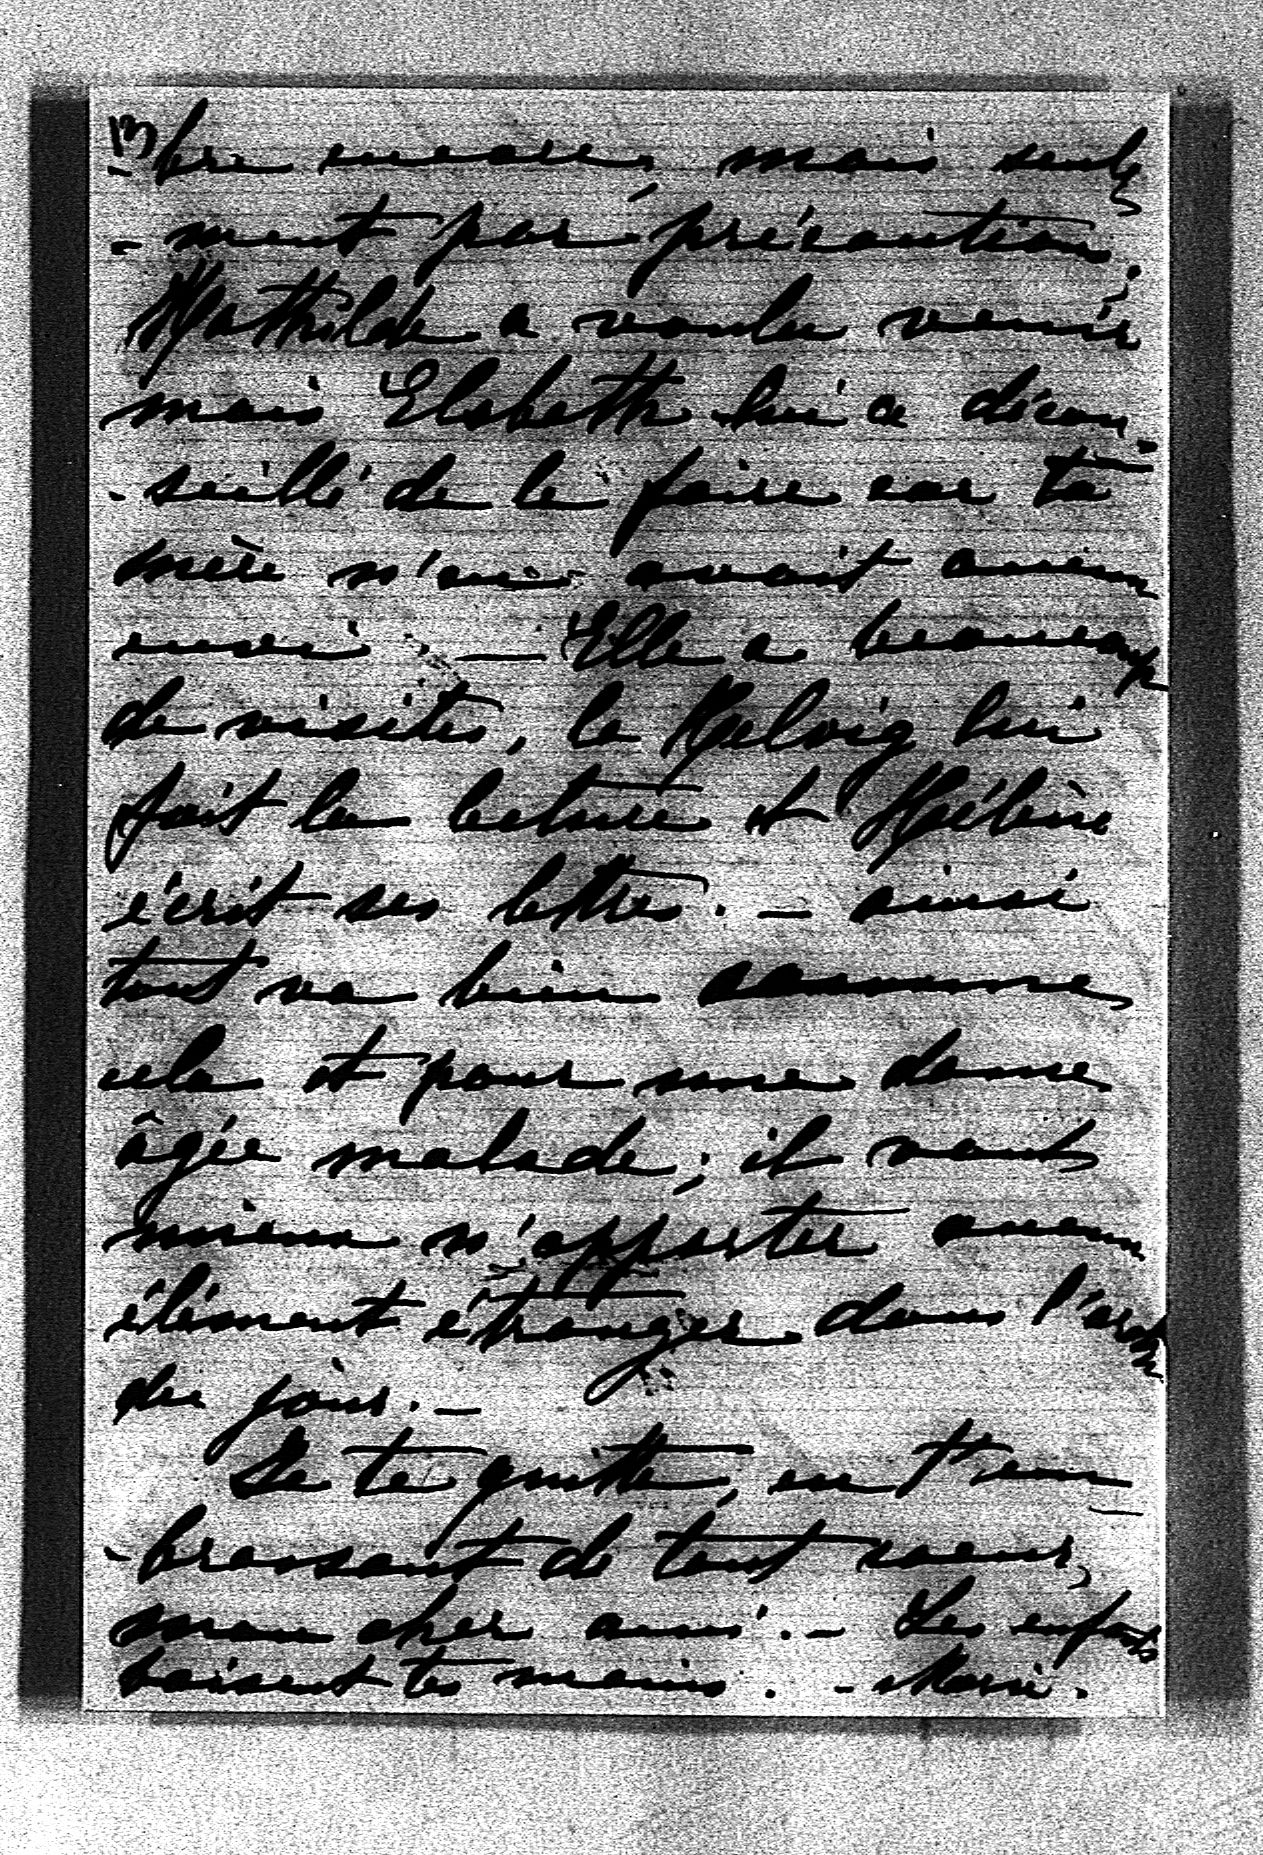 13
-bre encore, mais seule
-ment par précaution.
Mathilde a voulu venir
mais Elsbeth lui a décon-
-seillé de le faire car ta
mère n'en avait aucun
envie. — Elle a beaucoup
de visites, la Helvig lui
fait la lecture et Hélène
écrit ses lettres. — ainsi
tout va bien comme
cela et pour une dame
âgée malade, il vaut
mieux n'apporter aucun
élément étranger dans l'ordre
du jour. —
Je te quitte, en t'em-
-brassant de tout coeur,
mon cher ami. — Les enfants
baisent tes mains. — Marie.